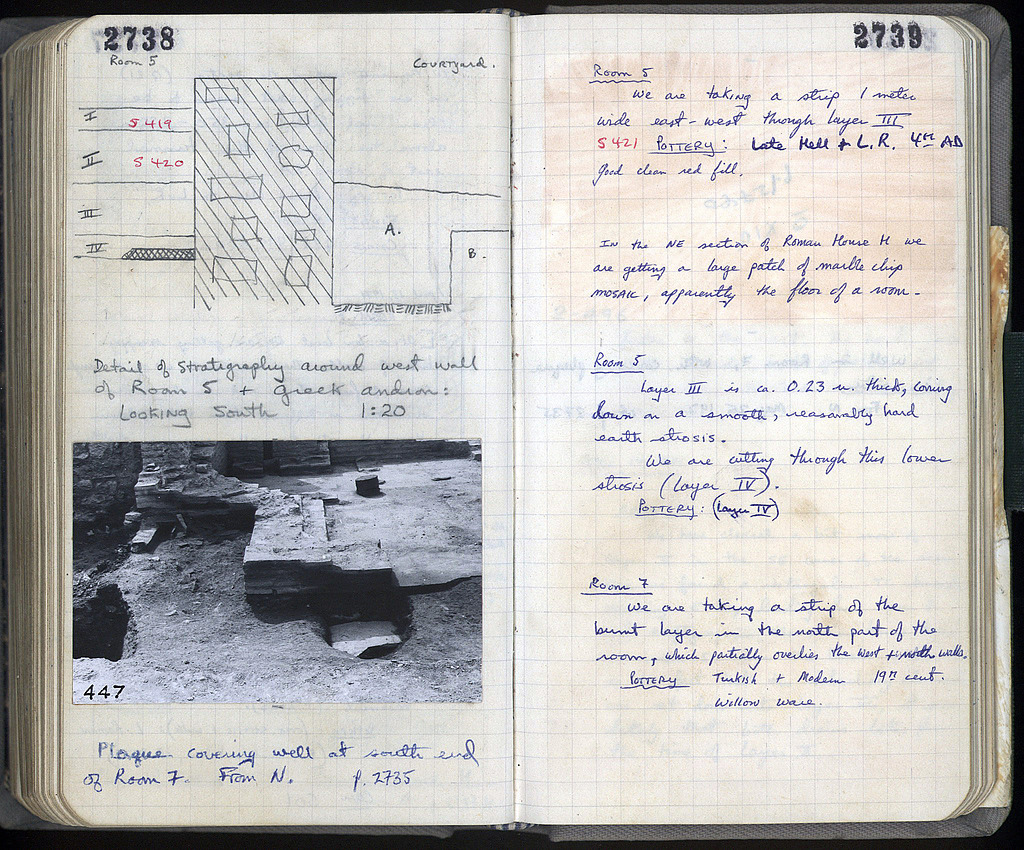 2738
Room 5
Courtyard.
I
S 419
II
S 420
III
IV
A.
B.
Detail of Stratigraphy around west wall
of Room 5 + Greek andron:
Looking South 1:20
447
Plaque covering well at south end
of Room 7. From N. p. 2735
2739
Room 5
We are taking a strip 1 meter
wide east-west through layer III
S 421 POTTERY: Late Hell + L.R. 4th AD
Good clean red fill.
In the NE section of Roman House H we
are getting a large patch of marble chip
MOSAIC, apparently the floor of a room.
Room 5
Layer III is ca. 0.23 m. thick, coming
down on a smooth, reasonably hard
earth strosis.
We are cutting through this lower
strosis (Layer IV).
POTTERY: (Layer IV)
Room 7
We are taking a strip of the
burnt layer in the north part of the
room, which partially overlies the west + north walls.
POTTERY Turkish + Modern 19th cent.
Willow ware.